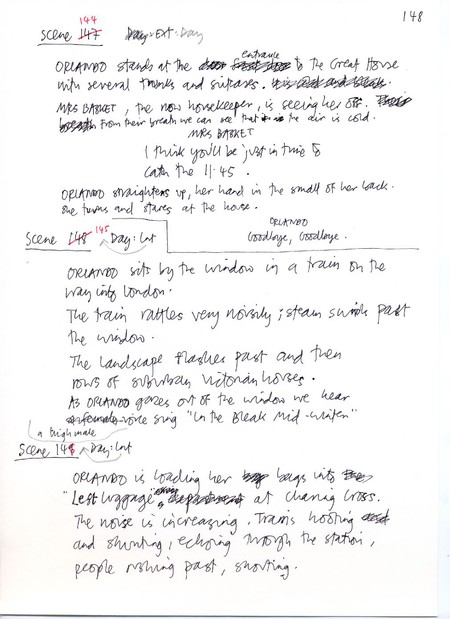 148
144
Scene 147 Day: Ext: Day
entrance
ORLANDO stands at the to the Great House
with several trunks and suitcases.
MRS BASKET, the now housekeeper, is seeing her off.
From their breath we can see that the air is cold.
MRS BASKET
I think you'll be just in time to
catch the 11.45.
ORLANDO straightens up, her hand in the small of her back.
She turns and stares at the house.
ORLANDO
Goodbye, Goodbye.
145
Scene 148 Day: Int
ORLANDO sits by the window in a train on the
way into London.
The train rattles very noisily; steam swirls past
the window.
The landscape flashes past and then
rows of suburban Victorian houses.
As ORLANDO gazes out of the window we hear
a female voice sing "In the Bleak Mid-winter"
a high male
Scene 146 Day: Int
ORLANDO is loading her bags into
"Left Luggage" at Charing Cross.
The noise is increasing. Trains hooting
and shunting, echoing through the station,
people rushing past, shouting.